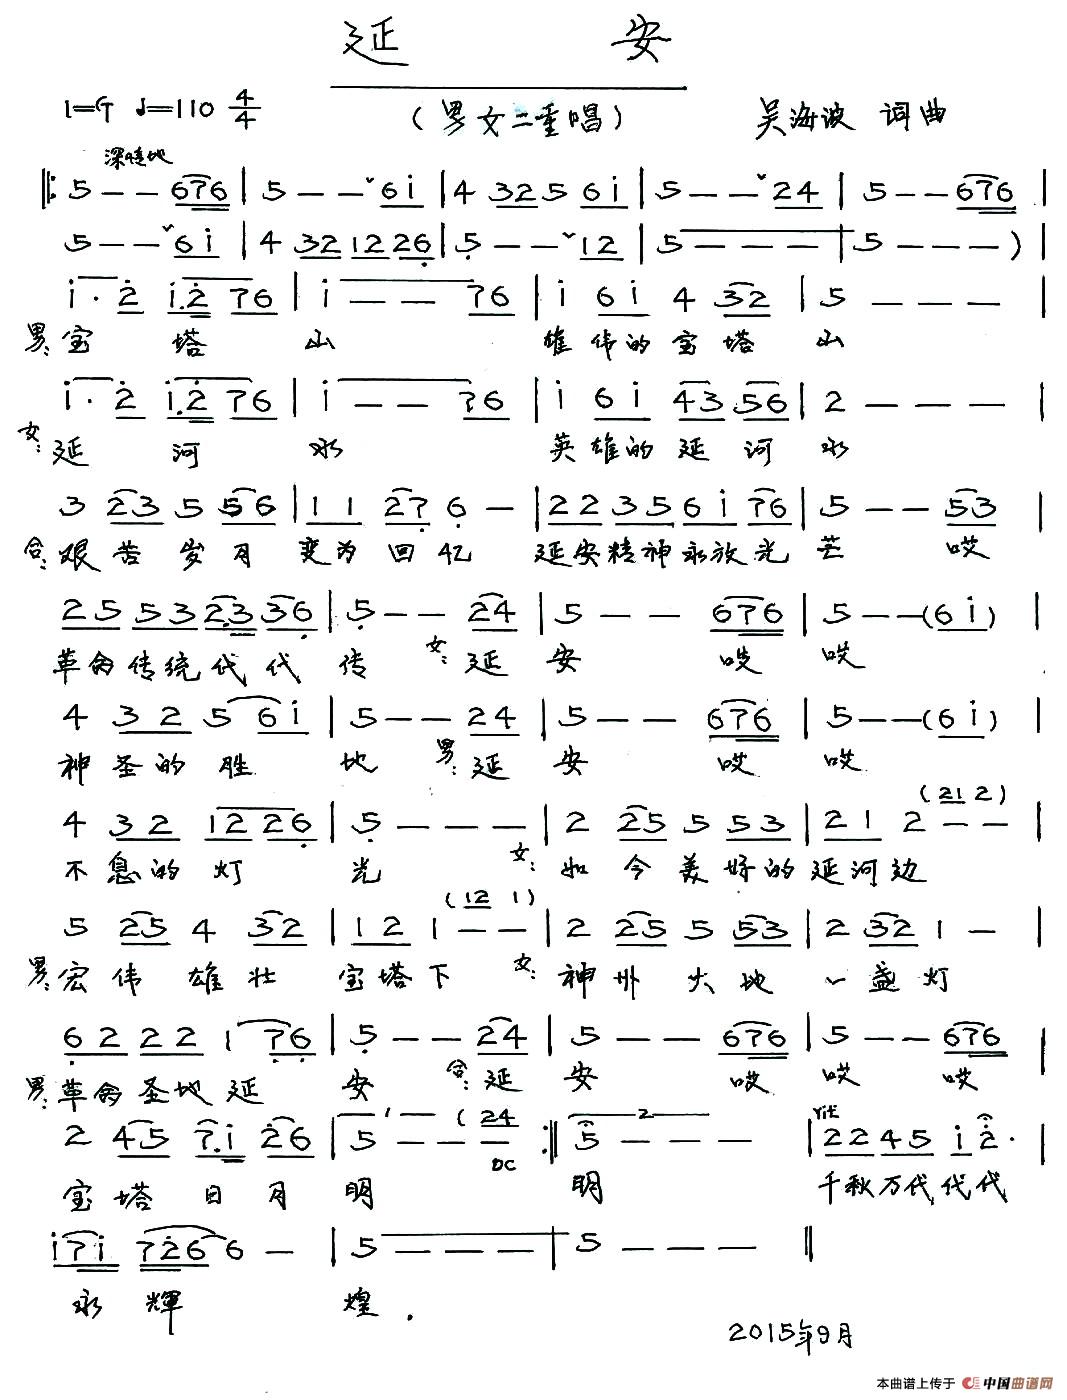 延安
1=G ♩=110 4/4 （男女二重唱） 吴海波 词曲
深情地
‖: 5 – – 676 | 5 – – ˇ 6i | 4 32 5 6i | 5 – – ˇ 24 | 5 – – 676 |
5 – – ˇ 6i | 4 32 12 26 | 5 – – ˇ 12 | 5 – – – | 5 – – – )
i· 2 i.2 76 | i – – 76 | i 6i 4 32 | 5 – – – |
男：宝 塔 山 雄伟的宝塔 山
i· 2 i.2 76 | i – – 76 | i 6i 43 56 | 2 – – – |
女：延 河 水 英雄的延河 水
3 23 5 56 | 11 27 6 – | 22 35 6i 76 | 5 – – 53 |
合：艰苦岁月 变为回忆 延安精神永放光 芒 哎
25 53 2.3 36 | 5 – – 24 | 5 – – 676 | 5 – – (6i) |
革命传统代代 传 女：延 安 哎 哎
4 32 5 6i | 5 – – 24 | 5 – – 676 | 5 – – (6i) |
神圣的胜 地 男：延 安 哎 哎
(21 2)
4 32 12 26 | 5 – – – | 2 25 5 53 | 21 2 – – |
不息的灯 光 女：如今美好的延河边
(12 1)
5 25 4 32 | 12 1 – – | 2 25 5 53 | 2 32 1 – |
男：宏伟雄壮 宝塔下 女：神州大地 一盏灯
62 22 1 76 | 5 – – 24 | 5 – – 676 | 5 – – 676 |
男：革命圣地延 安 合：延 安 哎 哎 哎
1 (24 2 rit
2 45 7.i 26 | 5 – – – :‖ 5 – – – | 22 45 i 2· |
DC
宝塔日月 明 明 千秋万代代代
i7i 726 6 – | 5 – – – | 5 – – – ‖
永辉 煌．
2015年9月
本曲谱上传于 中国曲谱网